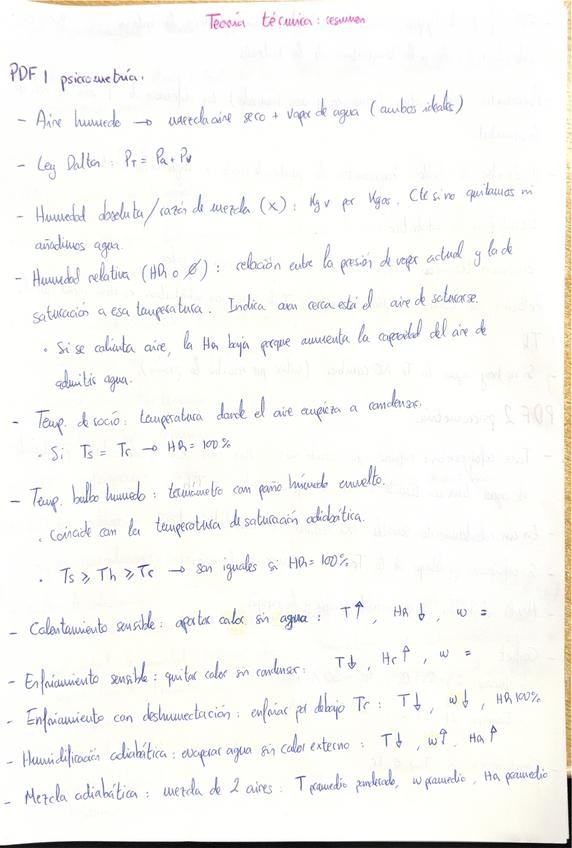 Teoría térmica: resumen
PDF 1 psicrometría.
- Aire humedo → mezcla aire seco + vapor de agua (ambos ideales)
- Ley Dalton: PT = Pa + Pv
- Humedad absoluta/razón de mezcla (x): Kg v por Kg as. Cte si no quitamos ni
añadimos agua.
- Humedad relativa (HR o Ø): relación entre la presión de vapor actual y la de
saturación a esa temperatura. Indica cuan cerca está el aire de saturarse.
• Si se calienta aire, la HR baja porque aumenta la capacidad del aire de
admitir agua.
- Temp. de rocío: temperatura donde el aire empieza a condensar.
• Si Ts = Tr → HR = 100%
- Temp. bulbo humedo: termómetro con paño húmedo envuelto.
• Coincide con la temperatura de saturación adiabática.
• Ts ⩾ Th ⩾ Tr → son iguales si HR = 100%
- Calentamiento sensible: aportar calor sin agua: T↑, HR↓, w =
- Enfriamiento sensible: quitar calor sin condensar: T↓, Hr↑, w =
- Enfriamiento con deshumectación: enfriar por debajo Tr: T↓, w↓, HR 100%
- Humidificación adiabática: evaporar agua sin calor externo: T↓, w↑, HR↑
- Mezcla adiabática: mezcla de 2 aires: T promedio ponderado, w promedio, HR promedio